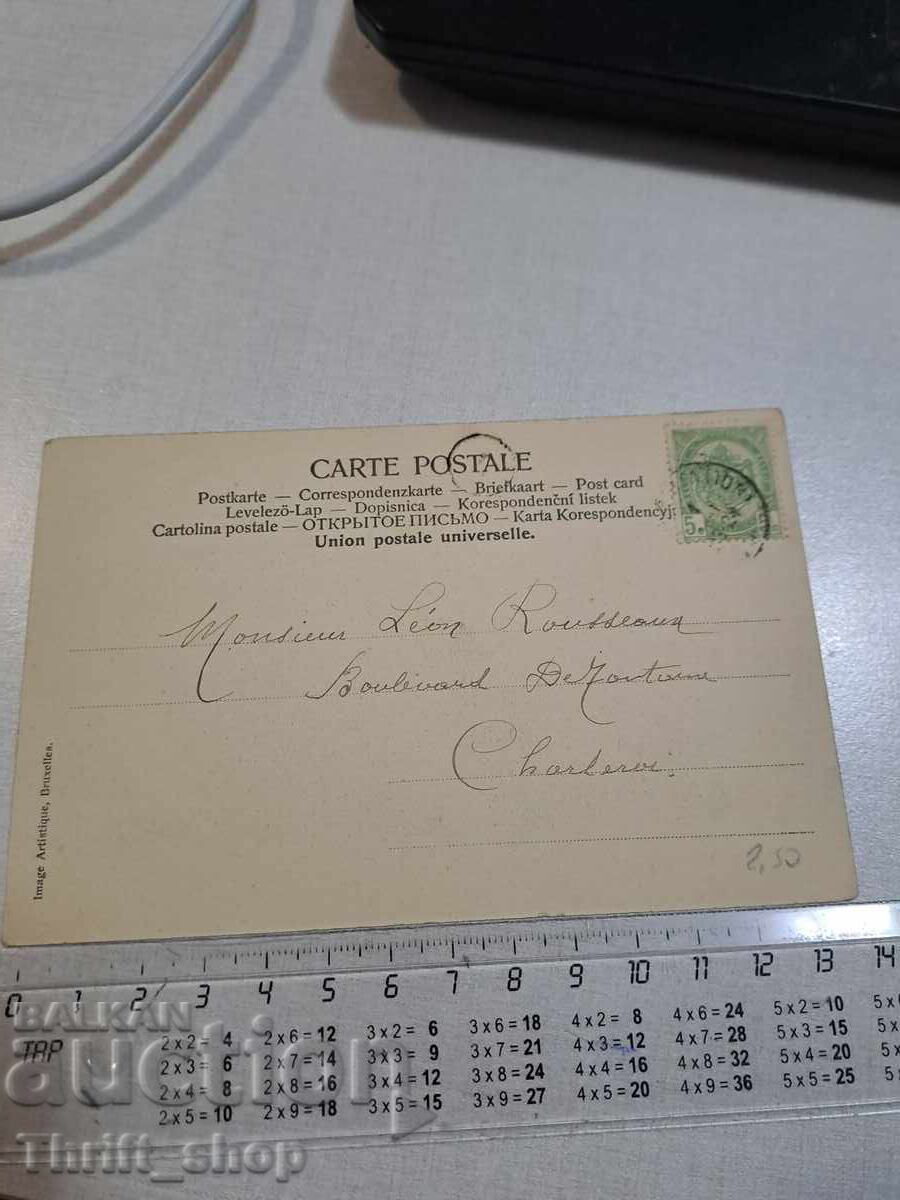 CARTE POSTALE
Postkarte — Correspondenzkarte — Briefkaart — Post card
Levelezö-Lap — Dopisnica — Korespondenční listek
Cartolina postale — ОТКРЫТОЕ ПИСЬМО — Karta Korespondencyj
Union postale universelle.
5
Monsieur Léon Rousseaux
Boulevard
Charleroi.
Image Artistique, Bruxelles.
2,50
0 1 2 3 4 5 6 7 8 9 10 11 12 13 14
TAP
2 x 2 = 4 2 x 6 = 12 3 x 2 = 6 3 x 6 = 18 4 x 2 = 8 4 x 6 = 24 5 x 2 = 10 5 x
2 x 3 = 6 2 x 7 = 14 3 x 3 = 9 3 x 7 = 21 4 x 3 = 12 4 x 7 = 28 5 x 3 = 15 5 x
2 x 4 = 8 2 x 8 = 16 3 x 4 = 12 3 x 8 = 24 4 x 4 = 16 4 x 8 = 32 5 x 4 = 20 5 x
2 x 5 = 10 2 x 9 = 18 3 x 5 = 15 3 x 9 = 27 4 x 5 = 20 4 x 9 = 36 5 x 5 = 25 5
BALKAN
auction
Thrift_shop